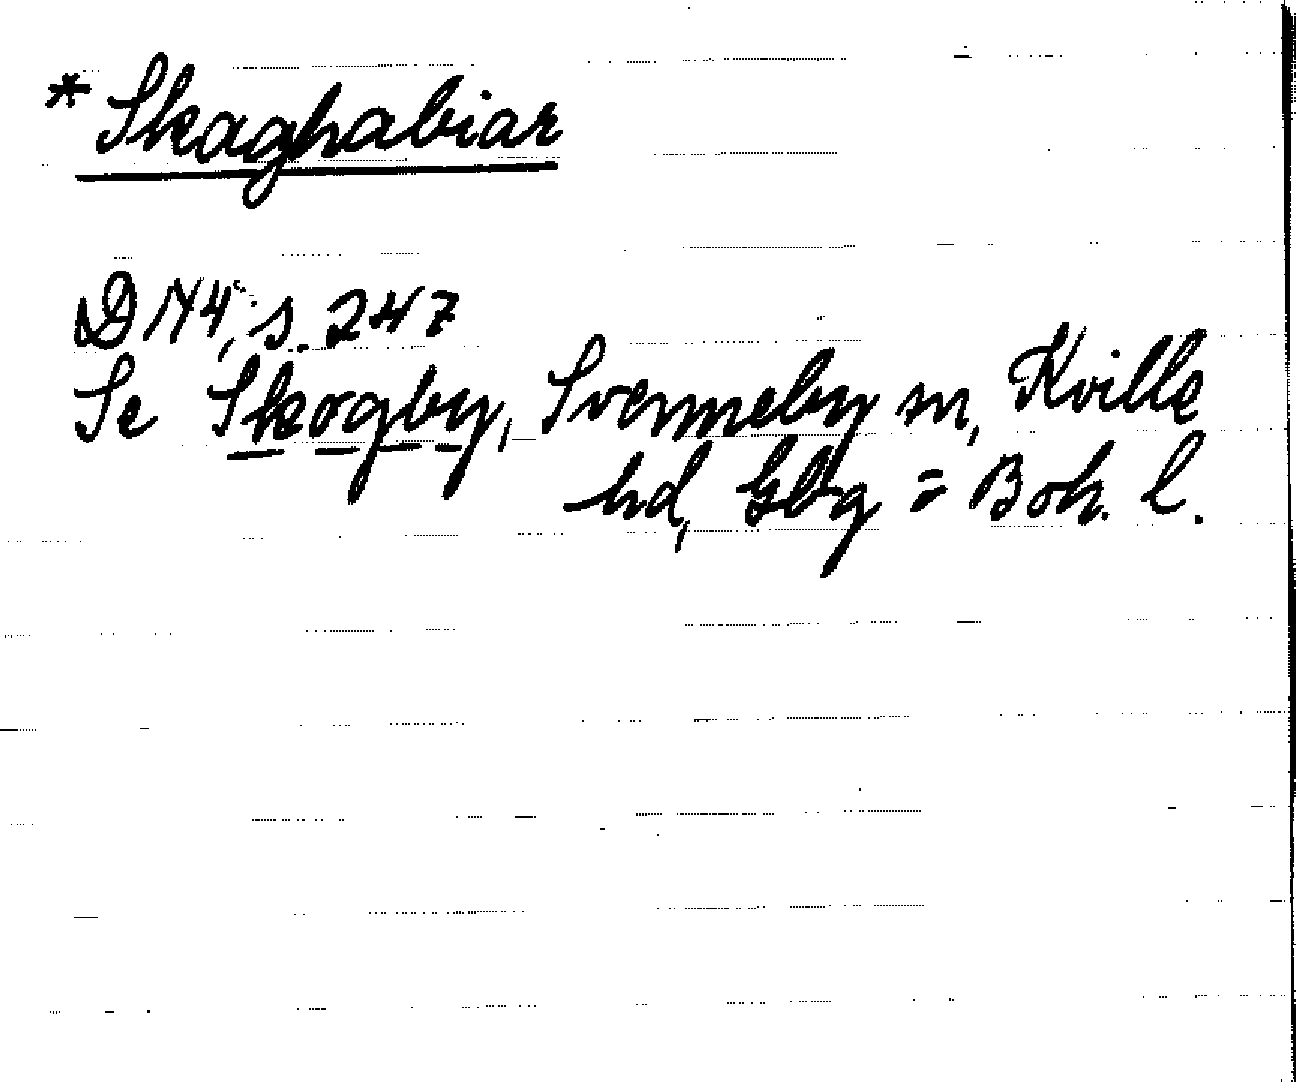 * Skaghabiar
DN4, s. 247
Se Skogby, Svenneby sn, Kville
hd, Gbg = Boh. l.